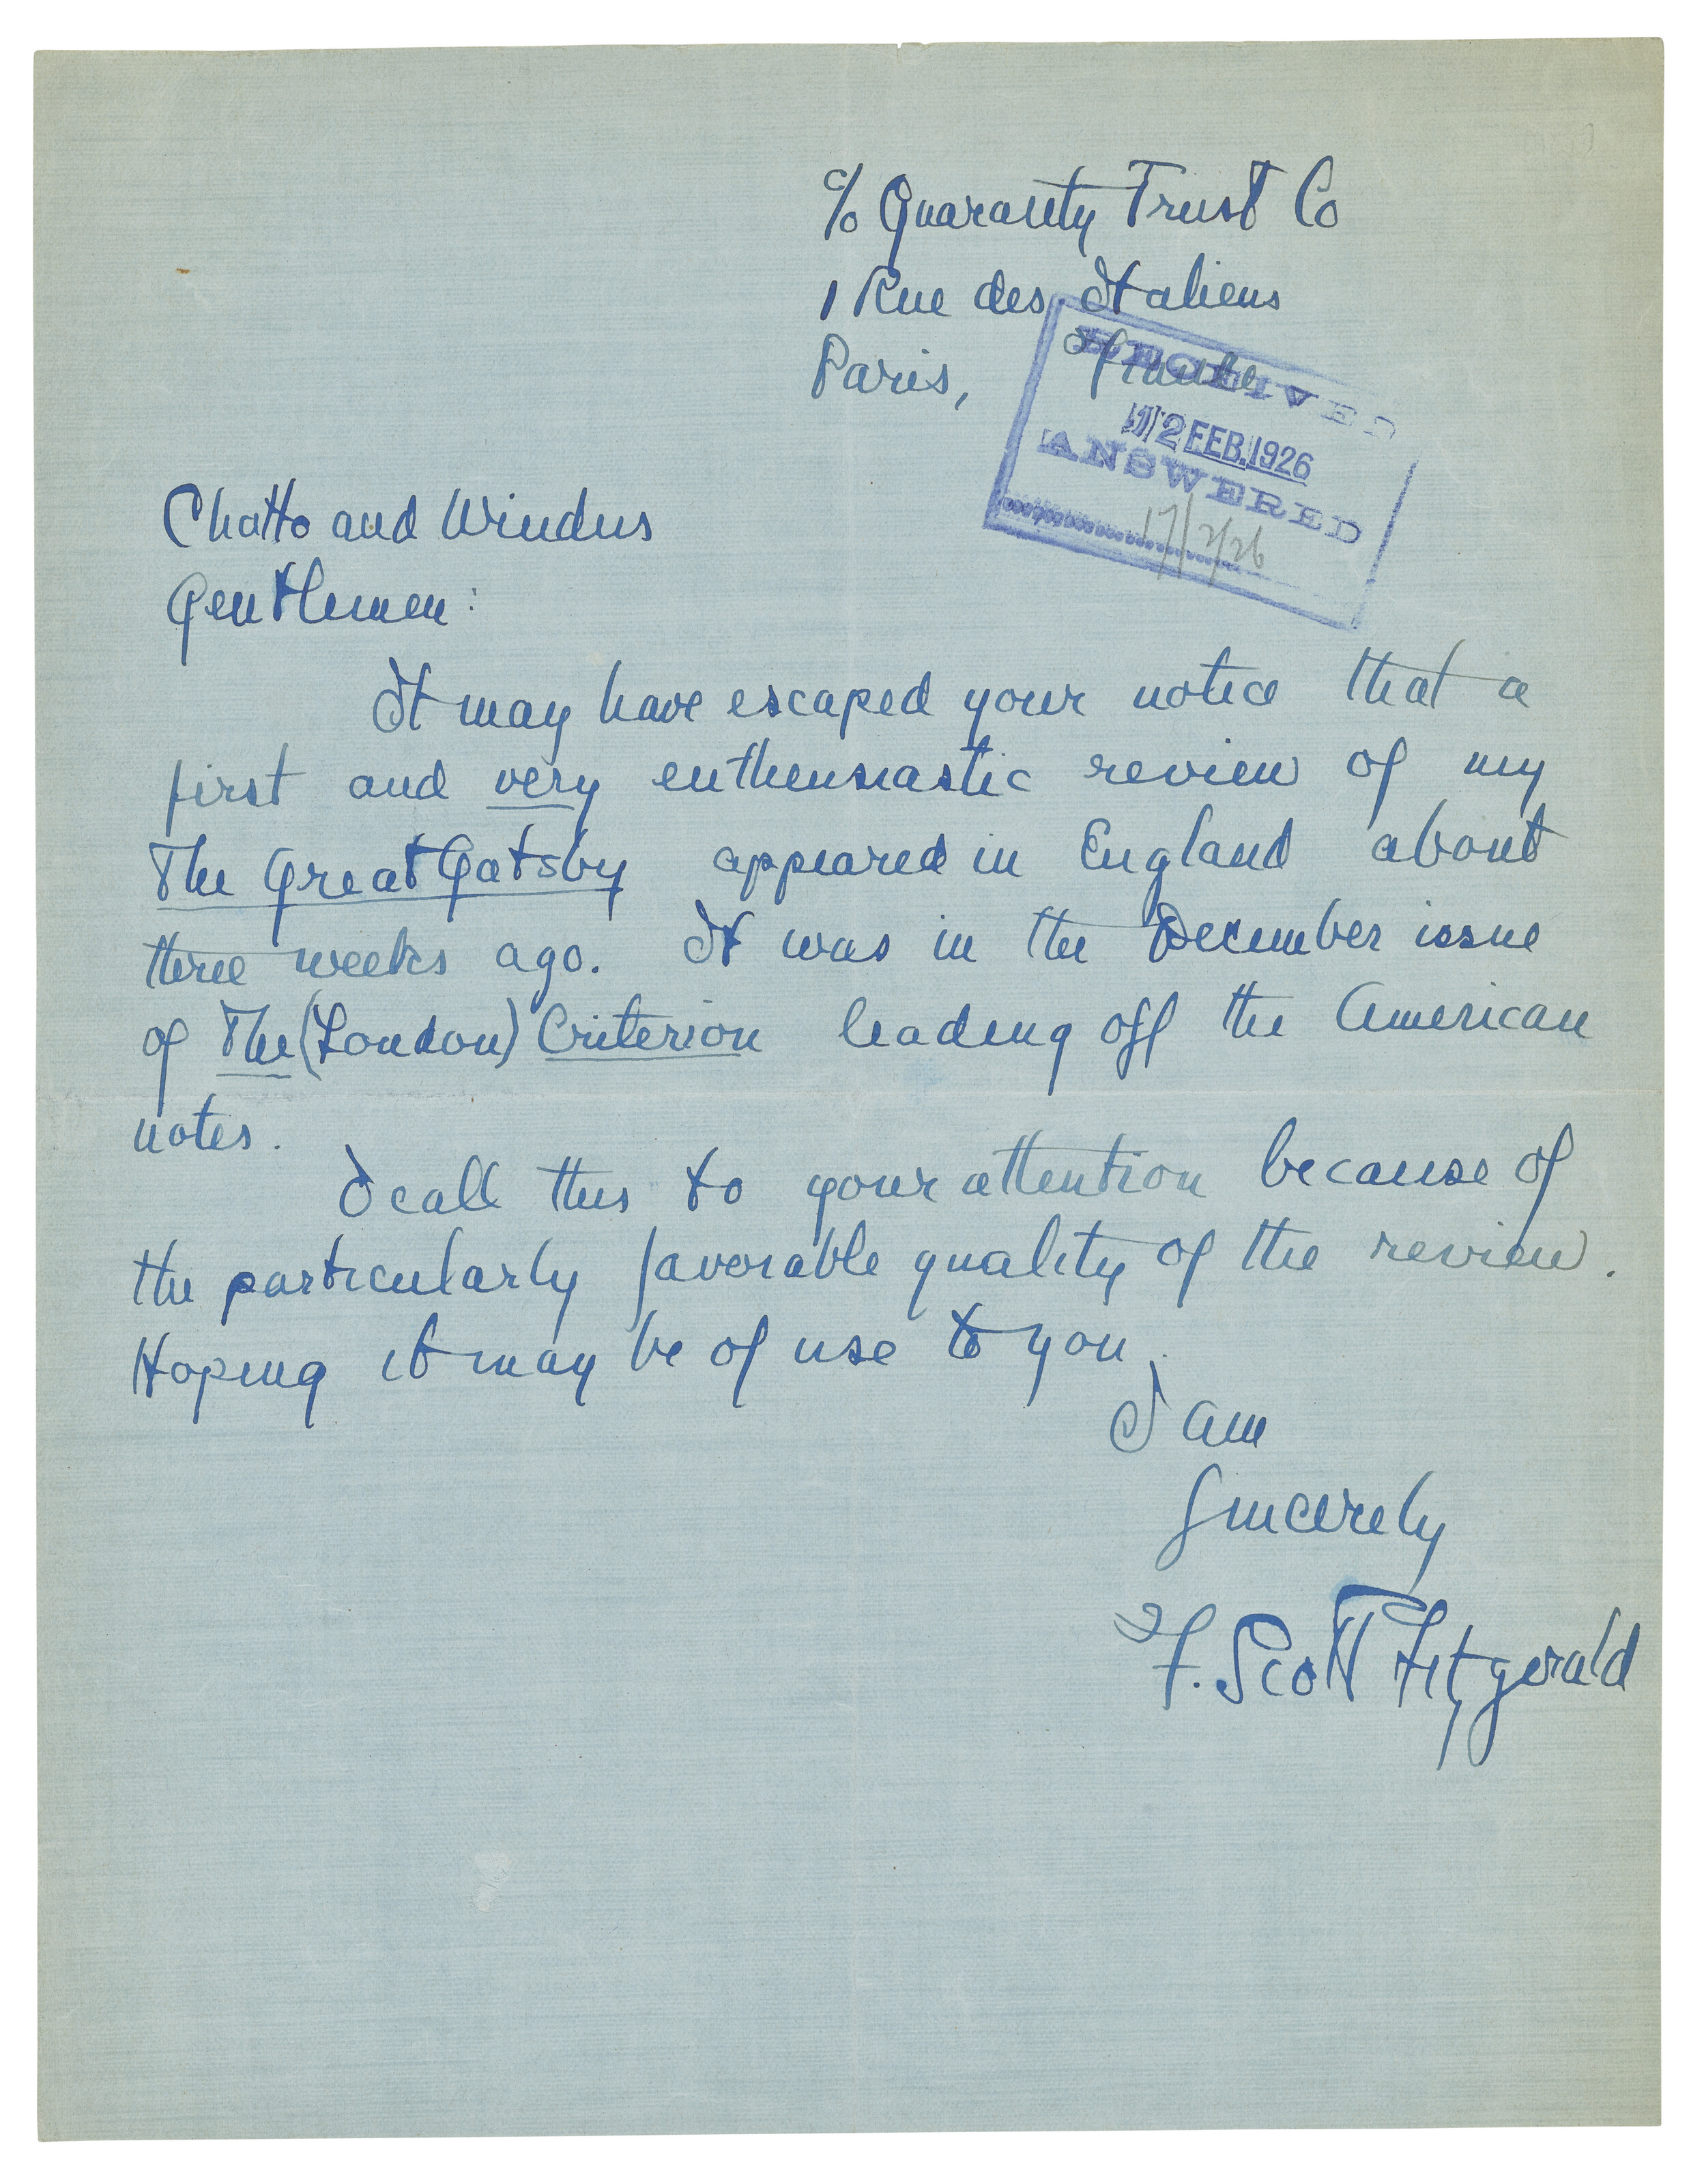 c/o Guaranty Trust Co
1 Rue des Italiens
Paris, France
RECEIVED
12 FEB. 1926
ANSWERED
17/2/26
Chatto and Windus
Gentlemen:
It may have escaped your notice that a
first and very enthensiastic review of my
The Great Gatsby appeared in England about
three weeks ago. It was in the December issue
of The (London) Criterion leading off the American
notes.
I call this to your attention because of
the particularly favorable quality of the review.
Hoping it may be of use to you.
I am
Sincerely
F. Scott Fitzgerald